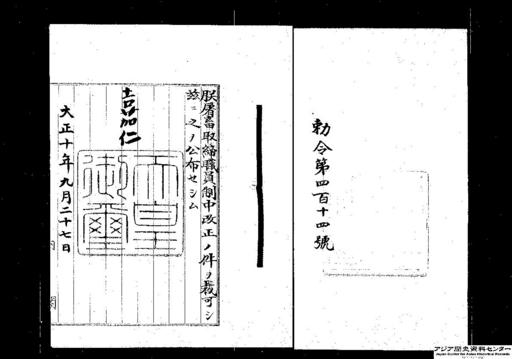 勅令第四百十四號
朕屠畜取締職員制中改正ノ件ヲ裁可シ
茲ニ之ヲ公布セシム
嘉仁
天皇
御璽
大正十年九月二十七日
内閣
アジア歴史資料センター
Japan Center for Asian Historical Records